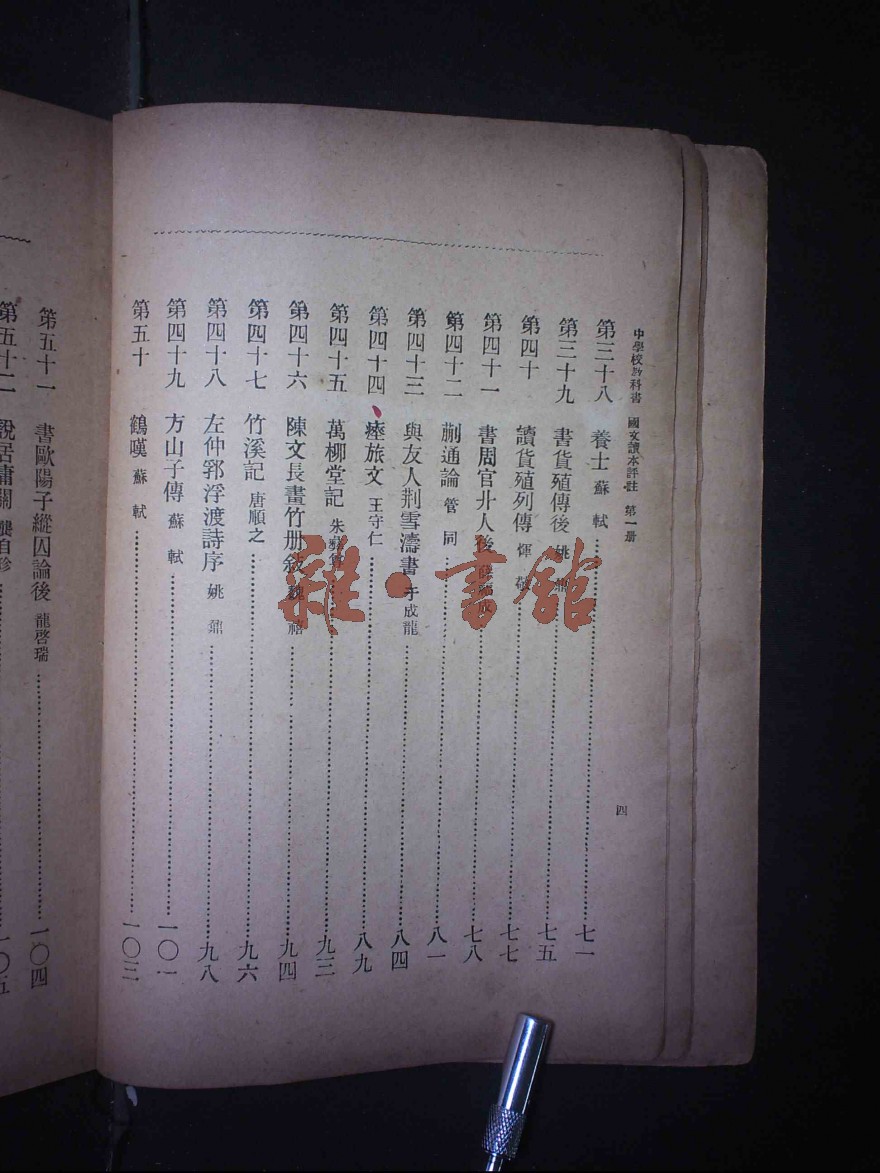 中學校教科書 國文讀本評註 第一册
四
第三十八 養士 蘇軾 七一
第三十九 書貨殖傳後 姚鼐 七五
第四十 讀貨殖列傳 惲敬 七七
第四十一 書周官廾人後 薛福成 七八
第四十二 蒯通論 管同 八一
第四十三 與友人荆雪濤書 于成龍 八四
第四十四 瘞旅文 王守仁 八九
第四十五 萬柳堂記 朱彝尊 九三
第四十六 陳文長畫竹册敍 魏禧 九四
第四十七 竹溪記 唐順之 九六
第四十八 左仲郛浮渡詩序 姚鼐 九八
第四十九 方山子傳 蘇軾 一〇一
第五十 鶴嘆 蘇軾 一〇三
第五十一 書歐陽子縱囚論後 龍啓瑞 一〇四
第五十二 說居庸關 龔自珍 一〇五
雜·書館